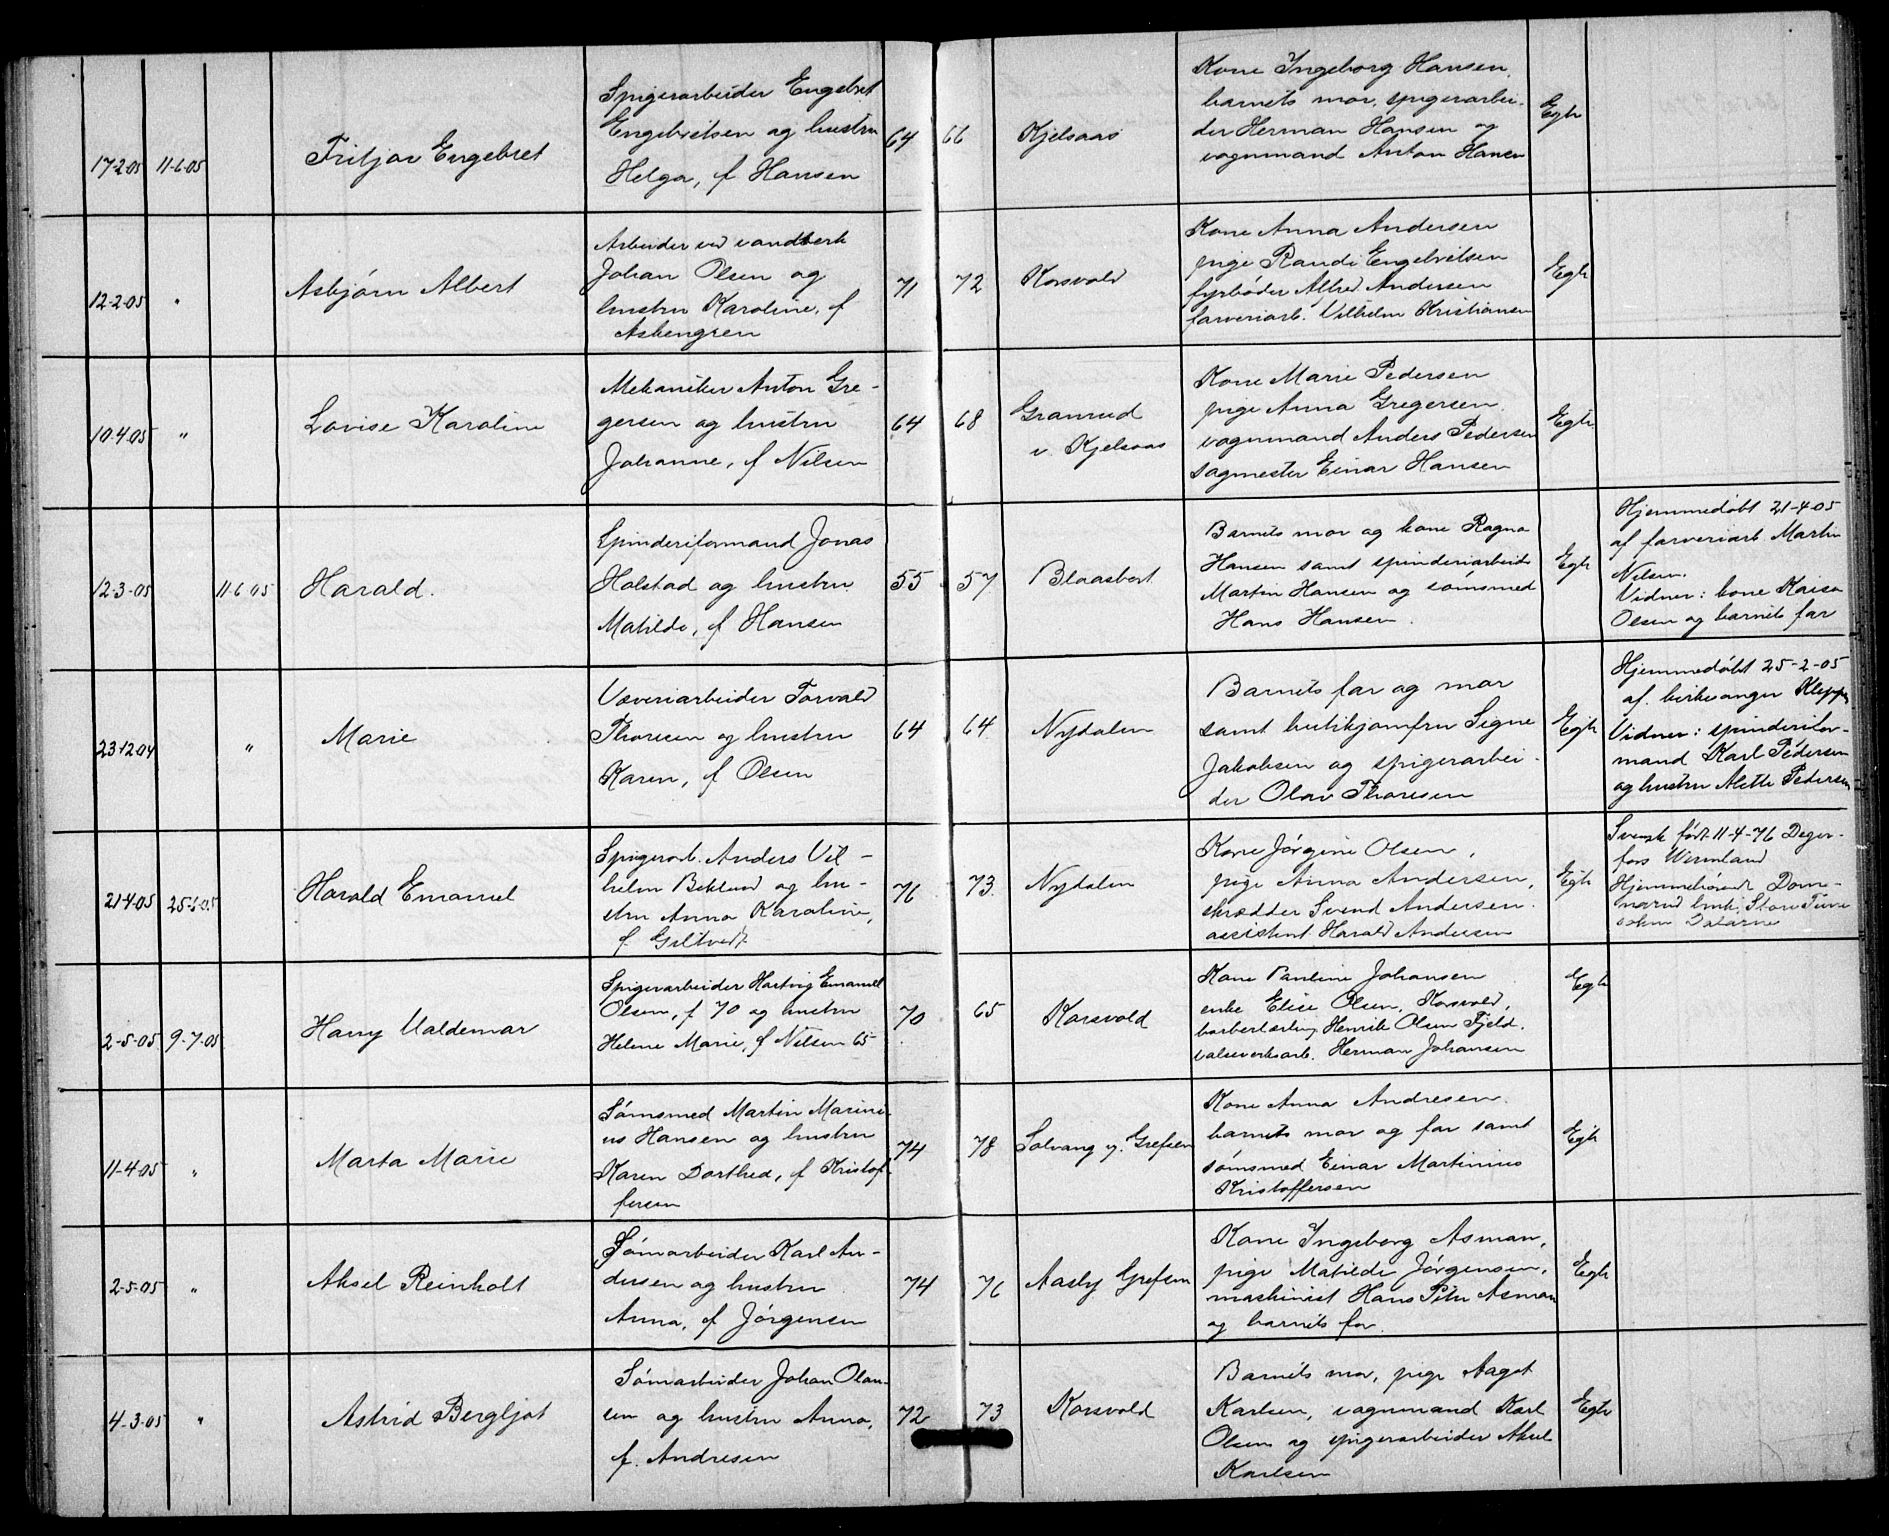 17-2-05 11-6-05 Fritjov Engebret
Spigerarbeider Engebret
Engebretsen og hustru
Helga, f Hansen
64 66 Kjelsaas
Kone Ingeborg Hansen,
barnets mor, spigerarbei-
der Herman Hansen og
vognmand Anton Hansen
Egte
12-2-05 " Asbjørn Albert
Arbeider ved vandverk
Johan Olsen og
hustru Karoline, f
Askengren
71 72 Korsvold
Kone Anna Andersen
pige Randi Engebretsen
fyrbøder Alfred Andersen
farveriarb. Vilhelm Kristiansen
Egte
10-4-05 " Lovise Karoline
Mekaniker Anton Gre-
gersen og hustru
Johanne, f Nilsen
64 68 Granrud
v. Kjelsaas
Kone Marie Pedersen
pige Anna Gregersen
vognmand Anders Pedersen
sagmester Einar Hansen
Egte
12-3-05 11-6-05 Harald.
Spinderiformand Jonas
Holstad og hustru
Matilde, f Hansen
55 57 Blaasbort
Barnets mor og kone Ragna
Hansen samt spinderiarbeider
Martin Hansen og sømsmed
Hans Hansen.
Egte
Hjemmedøbt 21-4-05
af farveriarb. Martin
Nilsen.
Vidner: kone Kaisa
Olsen og barnets far
23-12-04 " Marie
Væveriarbeider Torvald
Thoresen og hustru
Karen, f Olsen
64 64 Nydalen
Barnets far og mor
samt butikjomfru Signe
Jakobsen og spigerarbei-
der Olav Thoresen
Egte
Hjemmedøbt 25-2-05
af kirkesanger Kleppen
Vidner: spinderifor-
mand Karl Pedersen
og hustru Alette Pedersen
21-4-05 25-6-05 Harald Emanuel
Spigerarb. Anders Vil-
helm Beklund og hu-
stru Anna Karoline,
f
76 73. Nydalen
Kone Jørgine Olsen,
pige Anna Andersen,
skrædder Svend Andersen.
assistent Harald Andersen
Egte
Svensk født 11-4-76 Deger-
fors Wermland
Hjemmehørende
Stora Tuna
sokn Dalarne
2-5-05 9-7-05 Harry Valdemar
Spigerarbeider Hartvig Emanuel
Olsen, f 70 og hustru
Helene Marie, f Nilsen 65
70 65 Korsvold
Kone Pauline Johansen
enke Elise Olsen, Korsvold,
barberlærling Henrik Olsen Fjeld.
valseverksarb. Herman Johansen
Egte
11-4-05 " Marta Marie
Sømsmed Martin Marini-
us Hansen og hustru
Karen Dorthea, f Kristof-
fersen
74 78 Solvang v. Grefsen
Kone Anna Andresen.
barnets mor og far samt
sømsmed Einar Martinius
Kristoffersen
Egte
2-5-05 " Aksel Reinholt
Sømarbeider Karl An-
dersen og hustru
Anna, f Jørgensen
74 76 Aasly Grefsen
Kone Ingeborg Asman,
pige Matilde Jørgensen,
maskinist Hans Peter Asman
og barnets far.
Egte
4-3-05 " Astrid Bergljot
Sømarbeider Johan Olau-
sen og hustru Anna,
f. Andresen
72 73 Korsvold
Barnets mor, pige Aagot
Karlsen, vognmand Karl
Olsen og spigerarbeider Aksel
Karlsen
Egte